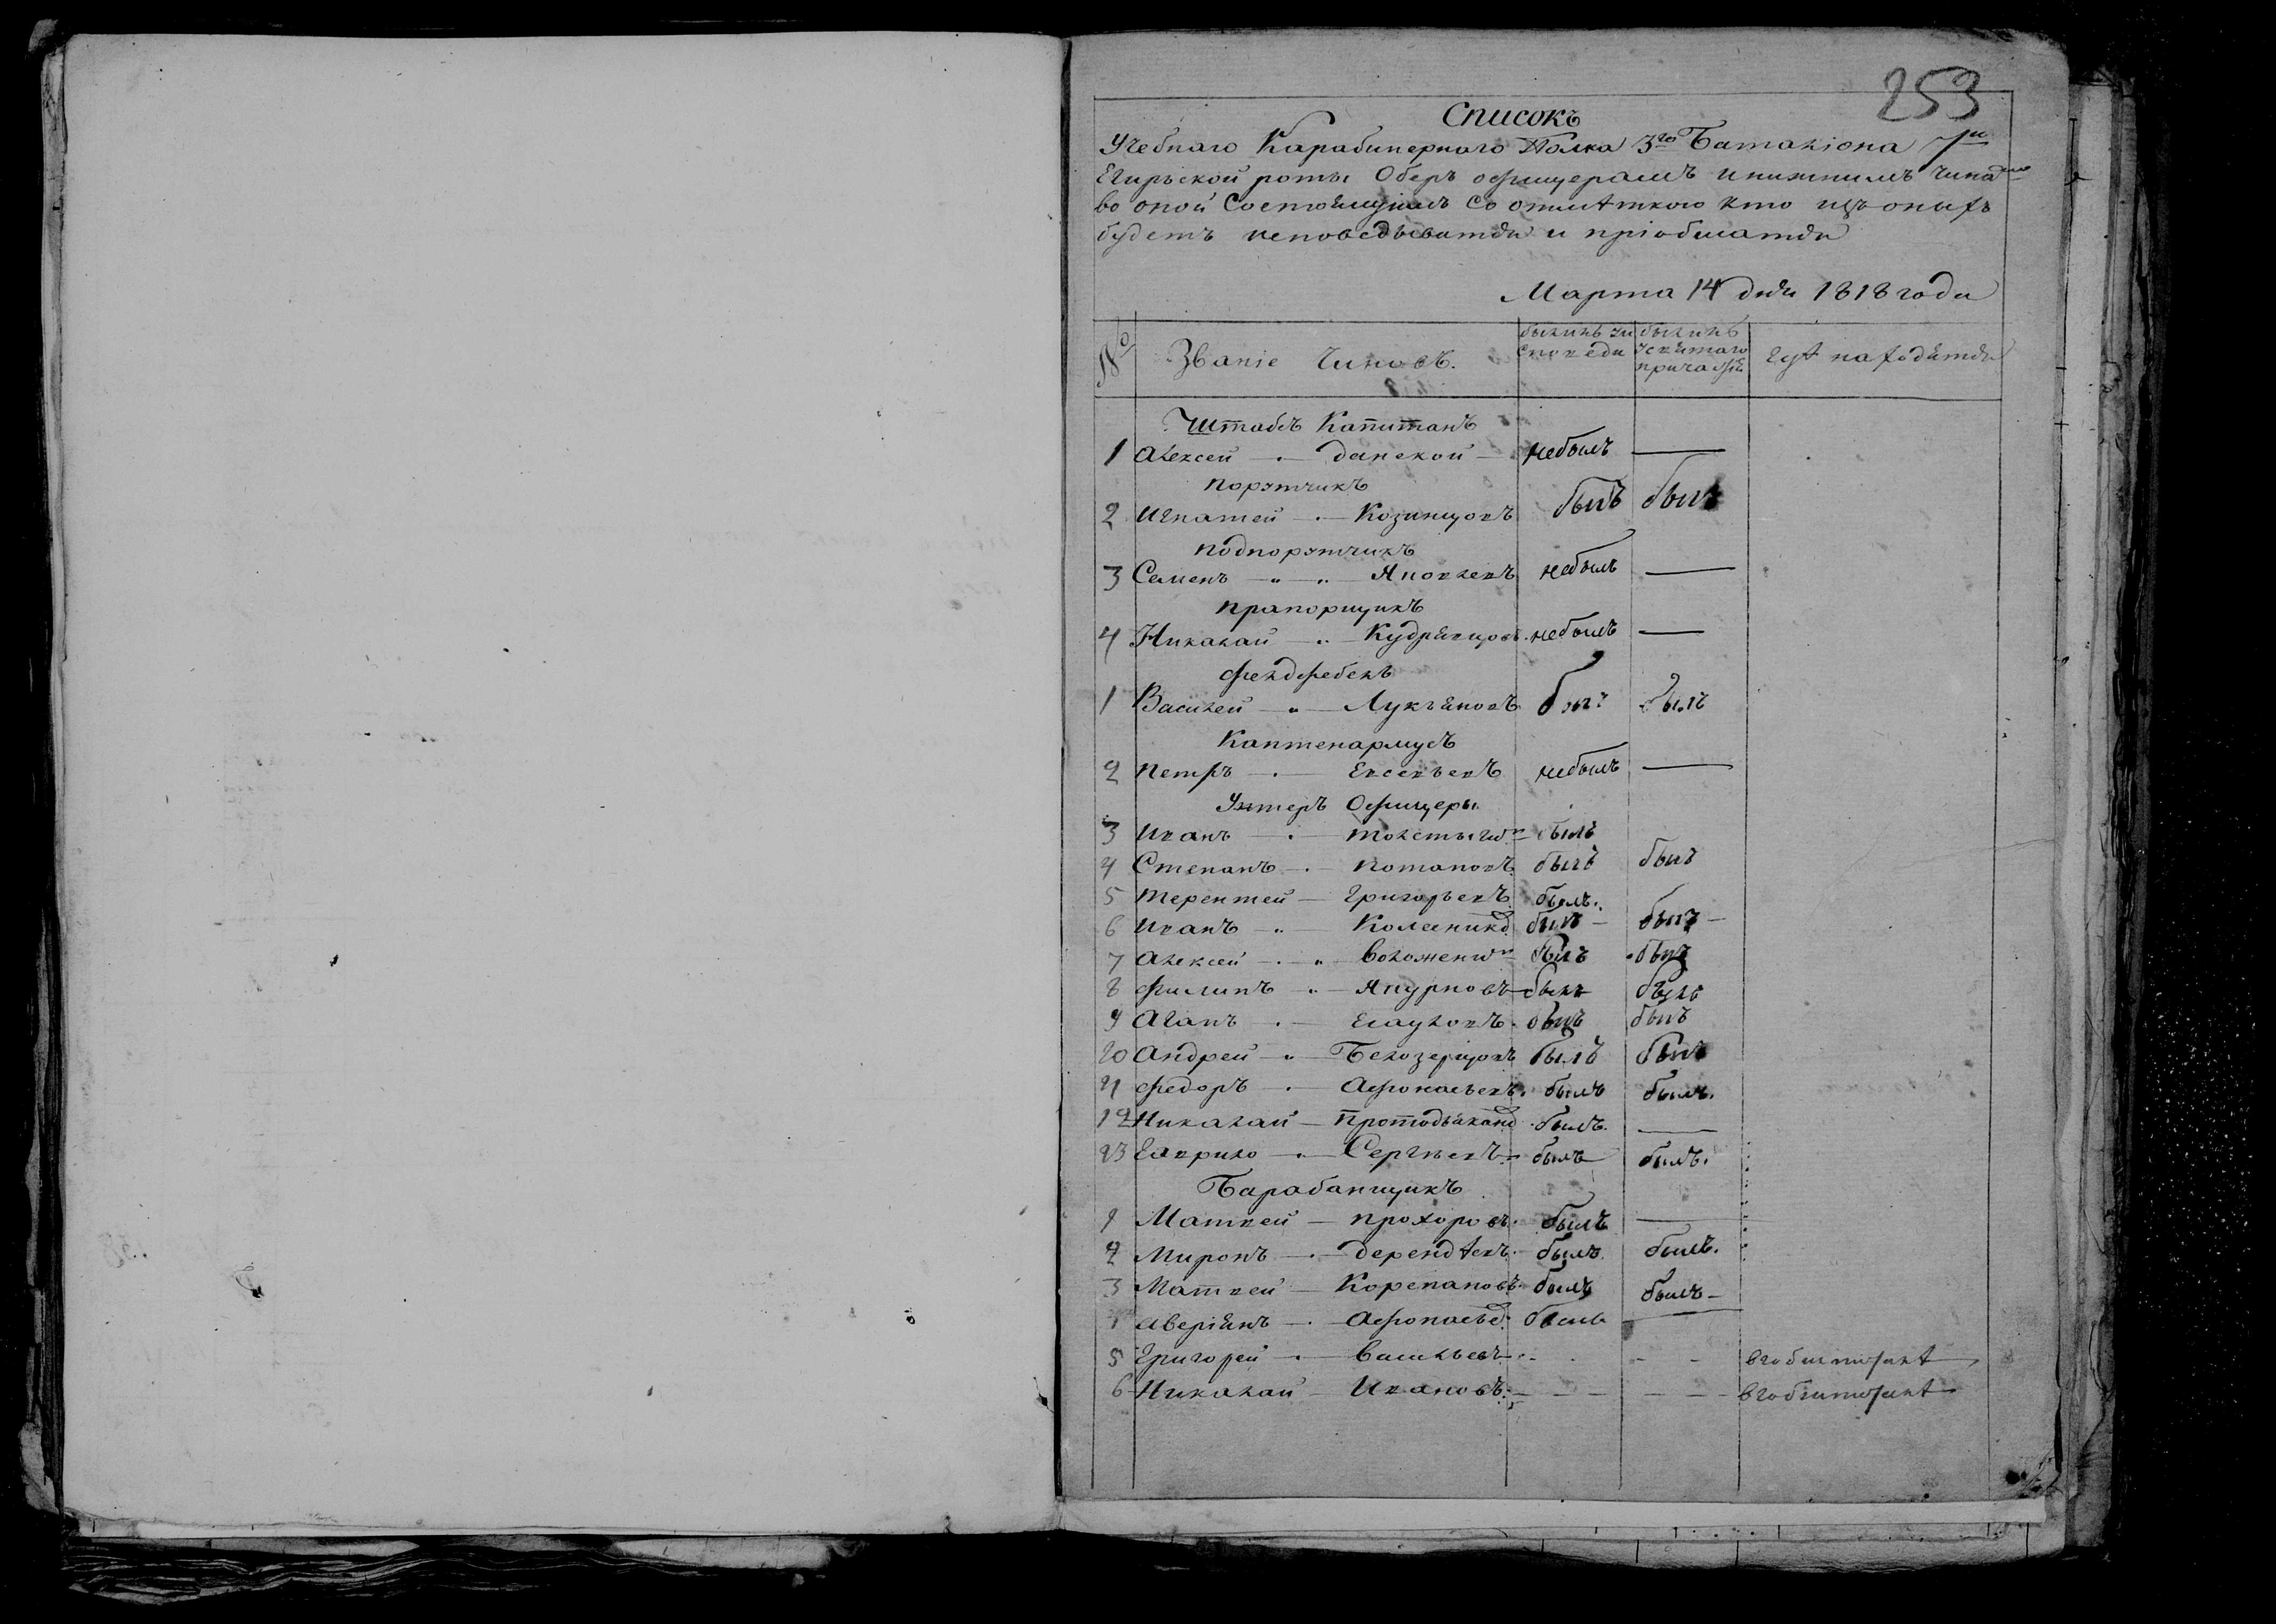 253
Списокъ
Учебнаго Карабинернаго Полка 3го Баталiона 7й
Егирьской роты Оберъ офицерамъ инижнимъ чина
во оной Состоящимъ Со отметкою кто изъ оныхъ
будетъ исповедыватця и прiобщатця
Марта 14 дня 1818 года
№ Званiе Чиновъ. былинъ на споведи былинъ усвятаго причастiя где находятця
Штабъ Капитанъ
1 Алексей — данской — небылъ —
порутчикъ
2 Игнатей — Козинцовъ былъ былъ
подпорутчикъ
3 Семенъ — Яковлевъ небылъ —
прапорщикъ
4 Никалай — Кудрявцовъ небылъ —
фелдфебелъ
1 Василей — Лукъяновъ былъ былъ
Каптенармусъ
2 петръ — Евсевьевъ небылъ —
Унтеръ Офицеры
3 Иванъ — толстыги былъ
4 Степанъ — потаповъ былъ былъ
5 терентей — Григорьевъ былъ.
6 Иванъ — Колесник былъ — былъ —
7 Алексей — воложени былъ былъ
8 филипъ — былъ былъ
9 Аганъ — былъ былъ
10 Андрей — Белозерцовъ былъ былъ
11 федоръ — Афонасьевъ. былъ былъ.
12 Никалай — Протодьякон былъ. —
13 Гаврило — Сергьевъ — былъ былъ.
Барабанщикъ
1 Матвей — прохоровъ. былъ —
2 Миронъ — дерендѣевъ. былъ. былъ.
3 Матвей — Корепановъ. былъ былъ —
4 Аверiянъ — Афонасьев. былъ —
5 Григорей — васильевъ
6 Никалай — Ивановъ